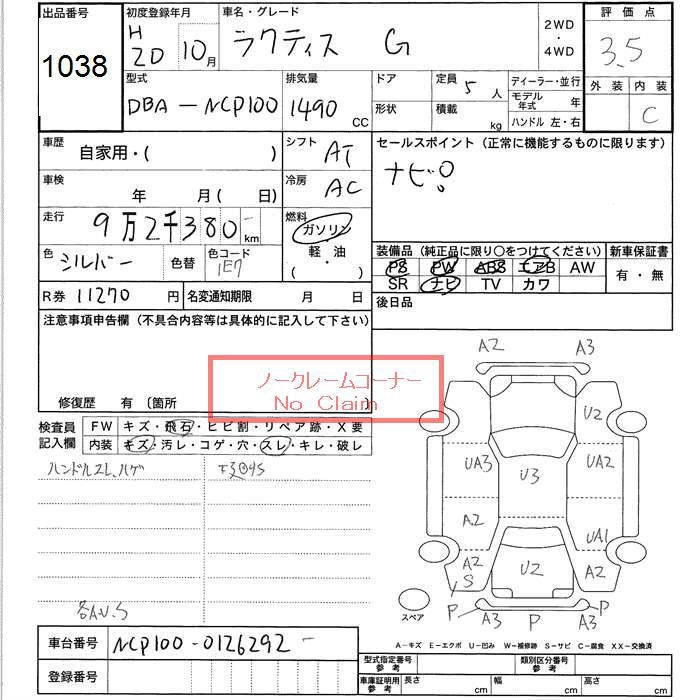 出品番号 初度登録年月 車名・グレード 2WD・4WD 評価点
1038 H20 10月 ラクティス G 3.5
型式 排気量 ドア 定員 5人 ディーラー・並行 外装 内装
DBA-NCP100 1490CC 形状 積載 kg モデル年式 年 C
ハンドル 左・右
車歴 自家用・( ) シフト AT セールスポイント(正常に機能するものに限ります)
車検 年 月( 日) 冷房 AC ナビ。
走行 9万2千380 km 燃料 ガソリン・軽・油 ( )
色 シルバー 色替 色コード 1E7 装備品(純正品に限り○をつけてください) 新車保証書
PS PW ABS エアB AW 有・無
R券 11270円 名変通知期限 月 日 SR ナビ TV カワ
後日品
注意事項申告欄(不具合内容等は具体的に記入して下さい)
ノークレームコーナー
No Claim
修復歴 有〔箇所
検査員記入欄 FW キズ・飛石・ヒビ割・リペア跡・X要
内装 キズ・汚レ・コゲ・穴・スレ・キレ・破レ
ハンドルスレ、ハゲ
各A.U.S
A2 A3
U2
UA3 U3 UA2
A2 UA1
A2 S U2 A2
P A3 P A3 P
スペア
A-キズ E-エクボ U-凹み W-補修跡 S-サビ C-腐食 XX-交換済
車台番号 NCP100-0126292
登録番号
型式指定番号参考 類別区分番号参考
車庫証明用参考 長さ cm 幅 cm 高さ cm